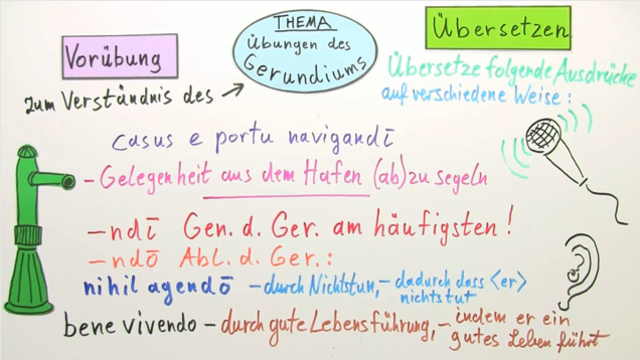 Vorübung
THEMA
Übungen des
Gerundiums
Übersetzen
zum Verständnis des →
Übersetze folgende Ausdrücke
auf verschiedene Weise:
casus e portu navigandī
- Gelegenheit aus dem Hafen (ab)zu segeln
-ndī Gen. d. Ger. am häufigsten!
-ndō Abl. d. Ger.:
nihil agendō - durch Nichtstun, - dadurch dass <er>
nichtstut
bene vivendo - durch gute Lebensführung, - indem er ein
gutes Leben führt